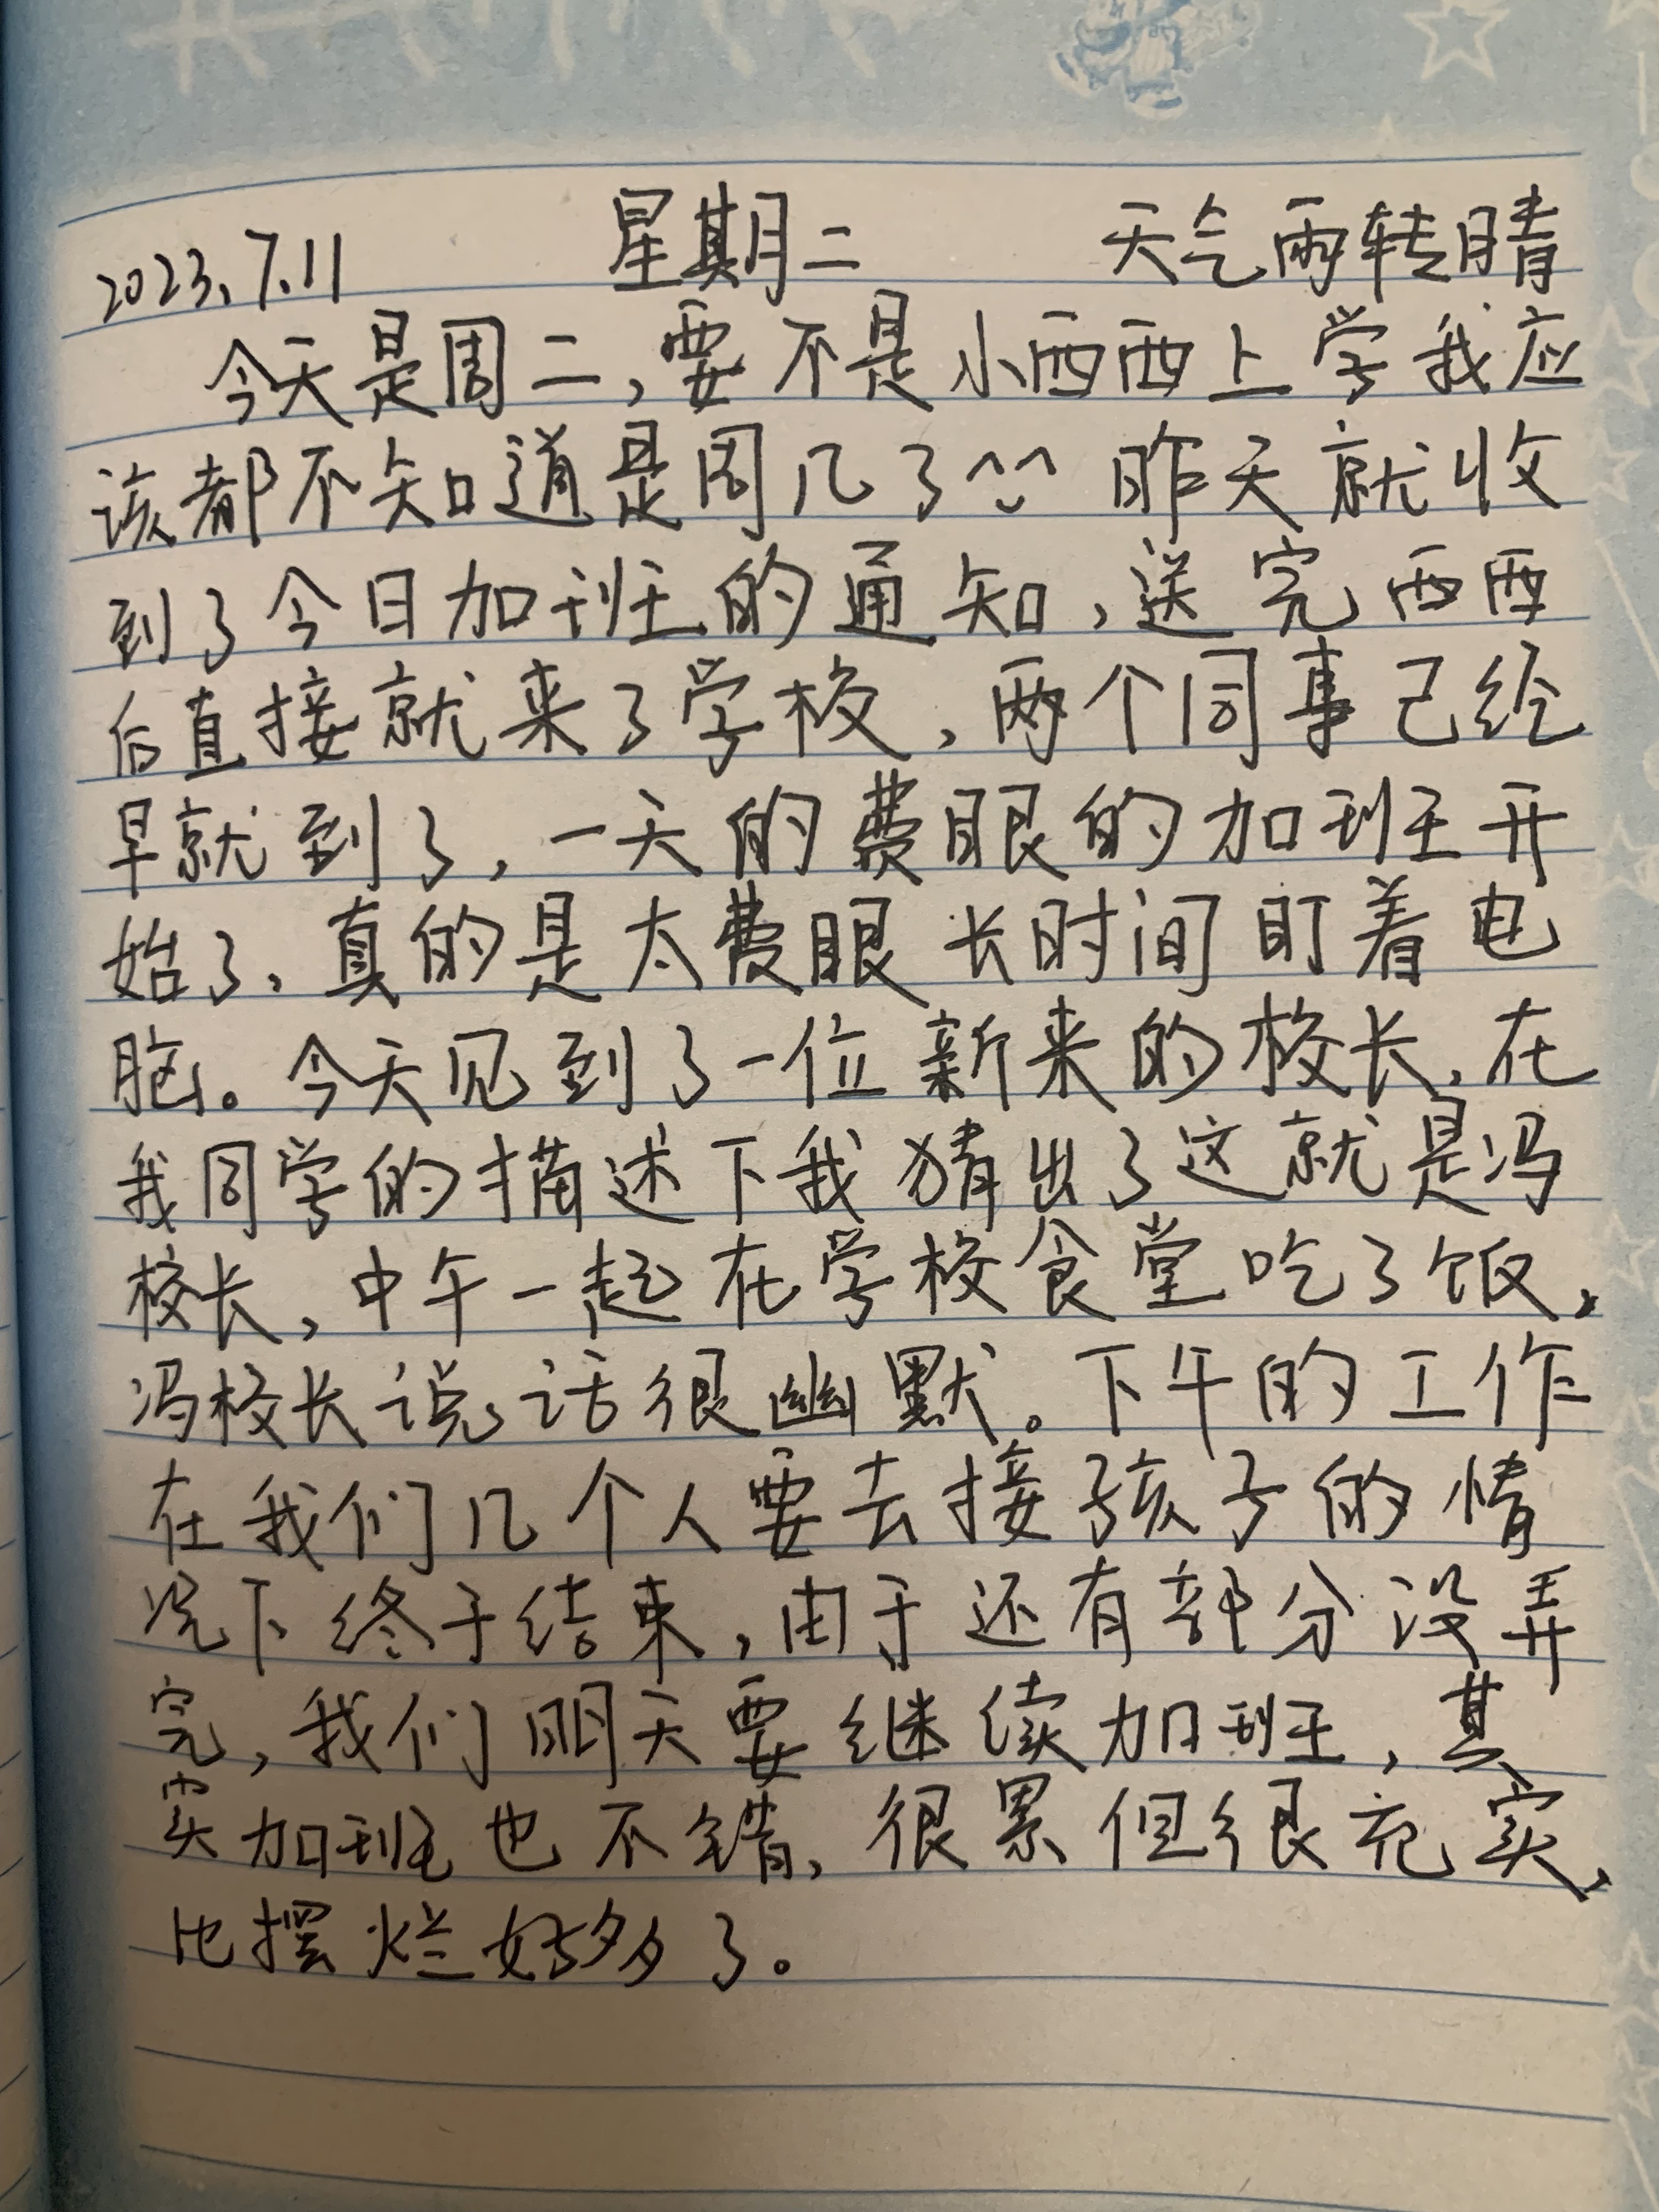 2023.7.11 星期二 天气雨转晴
今天是周二,要不是小西西上学我应
该都不知道是周几了^_^ 昨天就收
到了今日加班的通知,送完西西
后直接就来了学校,两个同事已经
早就到了,一天的费眼的加班开
始了,真的是太费眼长时间盯着电
脑。今天见到了一位新来的校长,在
我同学的描述下我猜出了这就是冯
校长,中午一起在学校食堂吃了饭,
冯校长说话很幽默。下午的工作
在我们几个人要去接孩子的情
况下终于结束,由于还有部分没弄
完,我们明天要继续加班,其
实加班也不错,很累但很充实,
比摆烂好多了。